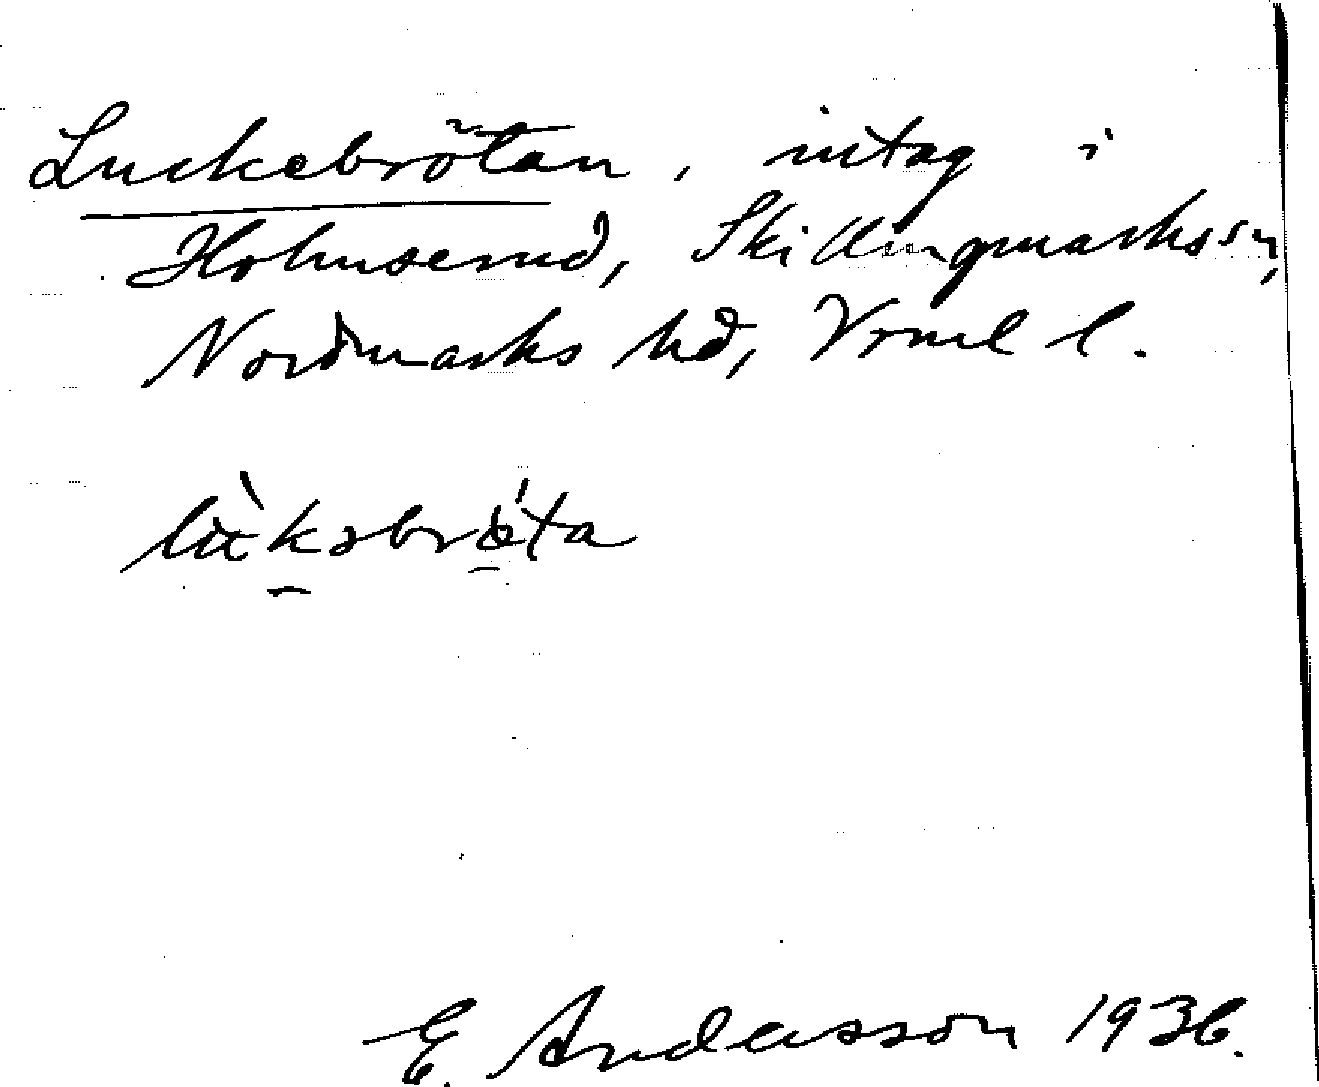 Luckebrötan, intag i
Holmserud, Skillingmarks sn,
Nordmarks hd, Vrml l.
lùkəbrǿta
E. Andersson 1936.